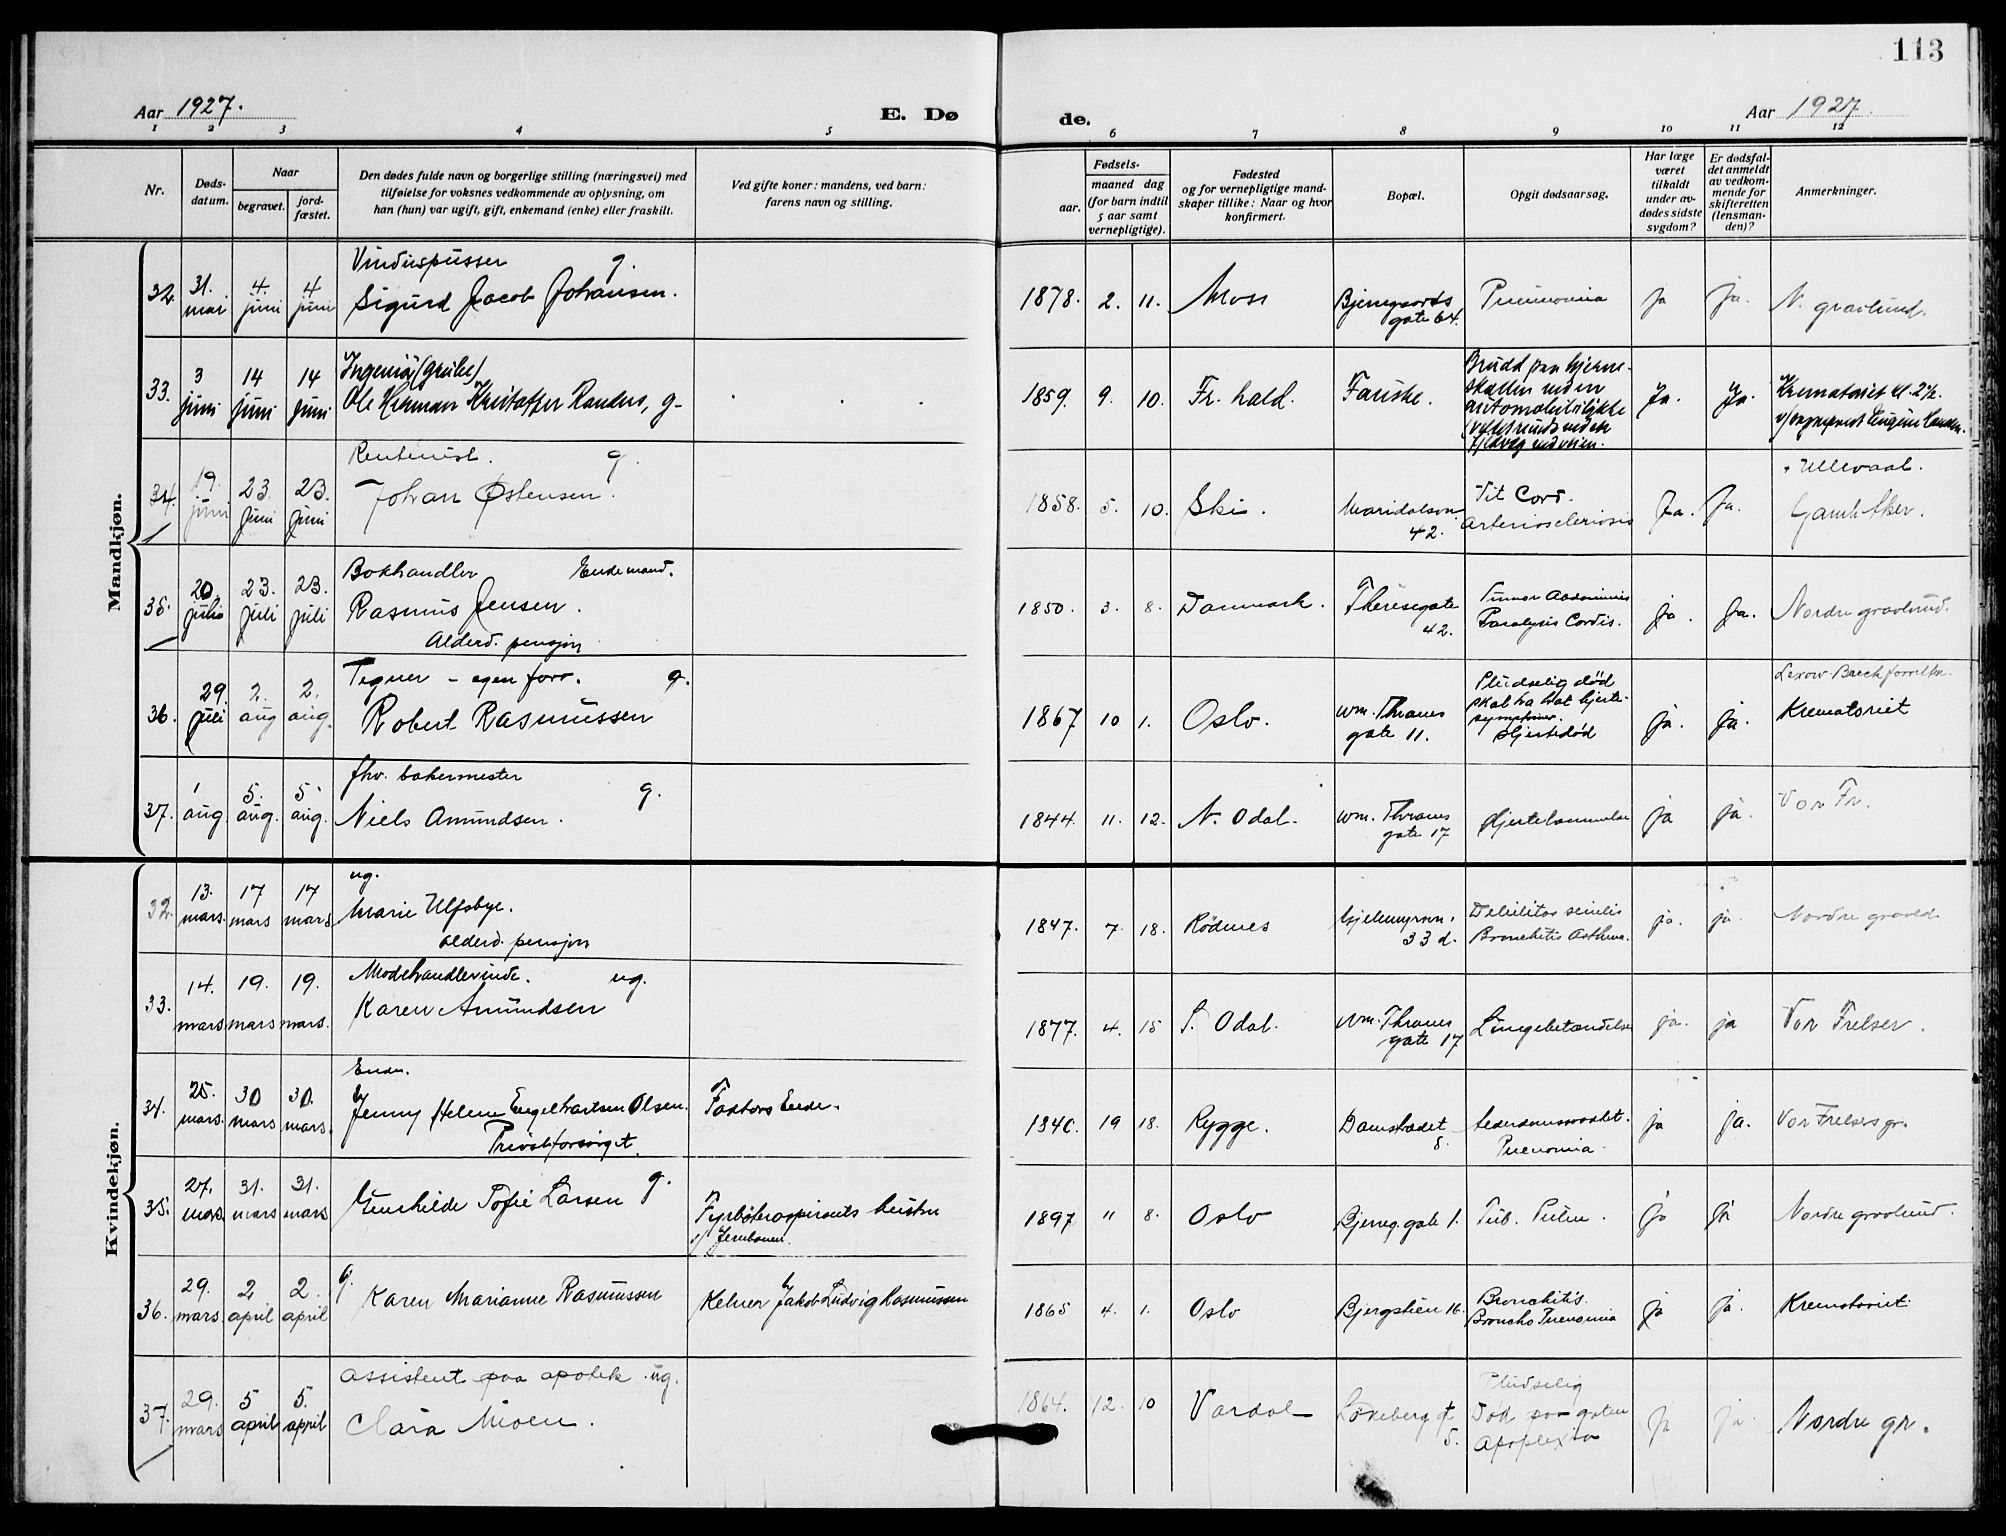 113
Aar 1927.
E. Dø de.
Aar 1927.
1 2 3 4 5 6 7 8 9 10 11 12
Nr.
Døds-
datum.
Naar
begravet.
jord-
fæstet.
Den dødes fulde navn og borgerlige stilling (næringsvei) med
tilføielse for voksnes vedkommende av oplysning, om
han (hun) var ugift, gift, enkemand (enke) eller fraskilt.
Ved gifte koner: mandens, ved barn:
farens navn og stilling.
Fødsels-
aar.
maaned dag
(for barn indtil
5 aar samt
vernepligtige).
Fødested
og for vernepligtige mand-
skaper tillike: Naar og hvor
konfirmert.
Bopæl.
Opgit dødsaarsag.
Har læge
været
tilkaldt
under av-
dødes sidste
sygdom?
Er dødsfal-
det anmeldt
av vedkom-
mende for
skifteretten
(lensman-
den)?
Anmerkninger.
Mandkjøn.
32. 31. mai 4. juni 4 juni
Vinduspusser g.
Sigurd Jacob Johansen.
1878. 2. 11. Moss Bjerregaards
gate 64. Pneumonia ja ja. N. gravlund.
33. 3 juni 14 juni 14 juni
Ingeniør (grube)
Ole Herman Kristoffer Randers, g-
1859. 9. 10. Fr. hald. Fauske.
Brudd paa hjerne-
skallen ved en
automobilulykke
Ja. Ja. Krematoriet kl. 2½.
34. 19. juni 23. juni 23. juni
Rentenist. g.
Johan Østensen.
1858. 5. 10. Ski. Maridalsvn
42. Vit Cord.
Arteriosclerosis Ja. Ja. Ullevaal.
Gamle Aker.
35. 20. juli 23. juli 23. juli
Bokhandler Enkemand.
Rasmus Jensen.
Alderd. pensjon
1850. 3. 8. Danmark. Theresegate
42. Tumor Abdominis
Paralysis Cordis. ja. ja. Nordre gravlund.
36. 29. juli 2. aug 2. aug.
Tegner - egen forr. g.
Robert Rasmussen
1867 10 1. Oslo. Wm. Thranes
gate 11. Pludselig død
skal ha hat hjerte-
symptomer.
Hjertedød ja. ja.
Krematoriet
37. 1 aug 5. aug. 5. aug.
fhv. bakermester g.
Niels Amundsen.
1844. 11. 12. N. Odal. Wm. Thranes
gate 17 Hjertelammelse ja ja. Vor Fr.
Kvindekjøn.
32. 13. mars. 17 mars 17 mars
ug.
Marie Ulfsbye.
Alderd. pensjon
1847. 7. 18. Rödenes
33 d. Debilitas senilis
Bronchitis Asthma. ja. ja. Nordre gravld.
33. 14. mars 19. mars 19. mars.
Modehandlerinde. ug.
Karen Amundsen
1877. 4. 15 S. Odal. Wm. Thranes
gate 17 Lungebetændelse ja. ja Vor Frelser.
34. 25. mars. 30 mars 30. mars.
Enke.
Jenny Helene Engelhartsen Olsen.
Privat forsørget.
Faktors Enke.
1840. 19 18. Rygge. Damstrædet
8. Alderdomssvakhet.
Pneumonia ja ja. Vor Frelsers gr.
35. 27. mars. 31. mars 31. mars
Gunhilde Sofie Larsen g.
Fyrbøteraspirants hustru
v/ Jernbanen.
1897 11 8. Oslo Bjerreg. gate 1. Tub. Pulm. ja ja Nordre gravlund.
36. 29. mars. 2 april 2. april
g. Karen Marianne Rasmussen
Kelner Jakob Ludvig Rasmussen
1865 4. 1. Oslo Bjergstien 16. Bronchitis.
Broncho Pneumonia ja ja. Krematoriet
37. 29. mars 5 april 5. april
Assistent paa apotek. ug.
Clara Moen.
1864. 12. 10 Vardal Løkeberg gt
5. Pludselig
Død paa gaten
Apoplexia ja ja. Nordre gr.